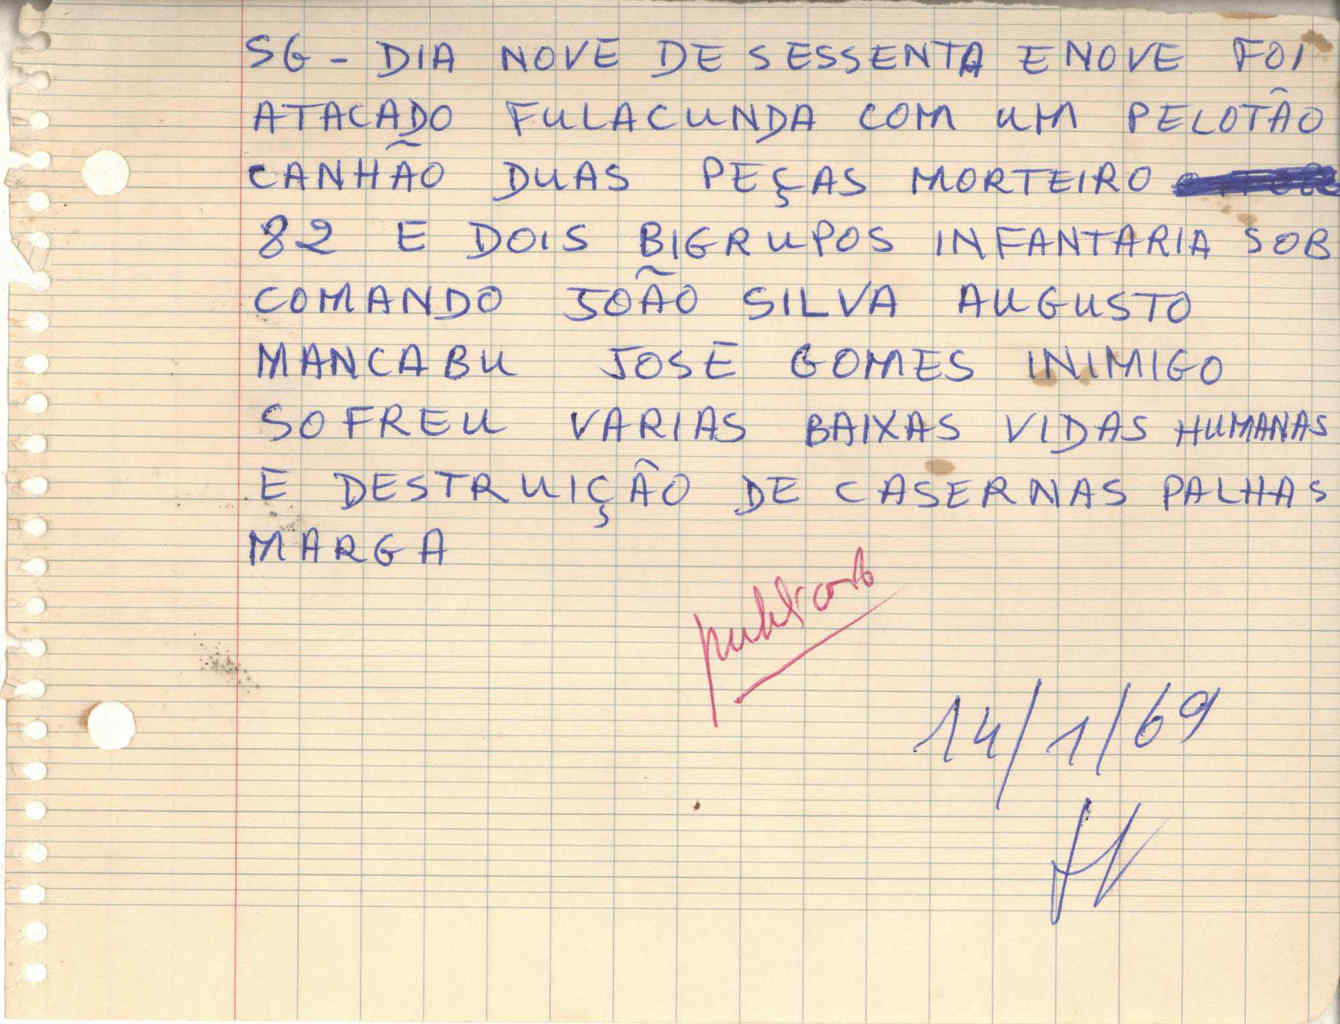 SG - DIA NOVE DE SESSENTA E NOVE FOI
ATACADO FULACUNDA COM UM PELOTÃO
CANHÃO DUAS PEÇAS MORTEIRO
82 E DOIS BIGRUPOS INFANTARIA SOB
COMANDO JOÃO SILVA AUGUSTO
MANCABU JOSE GOMES INIMIGO
SOFREU VARIAS BAIXAS VIDAS HUMANAS
E DESTRUIÇÃO DE CASERNAS PALHAS
MARGA
publicado
14/1/69